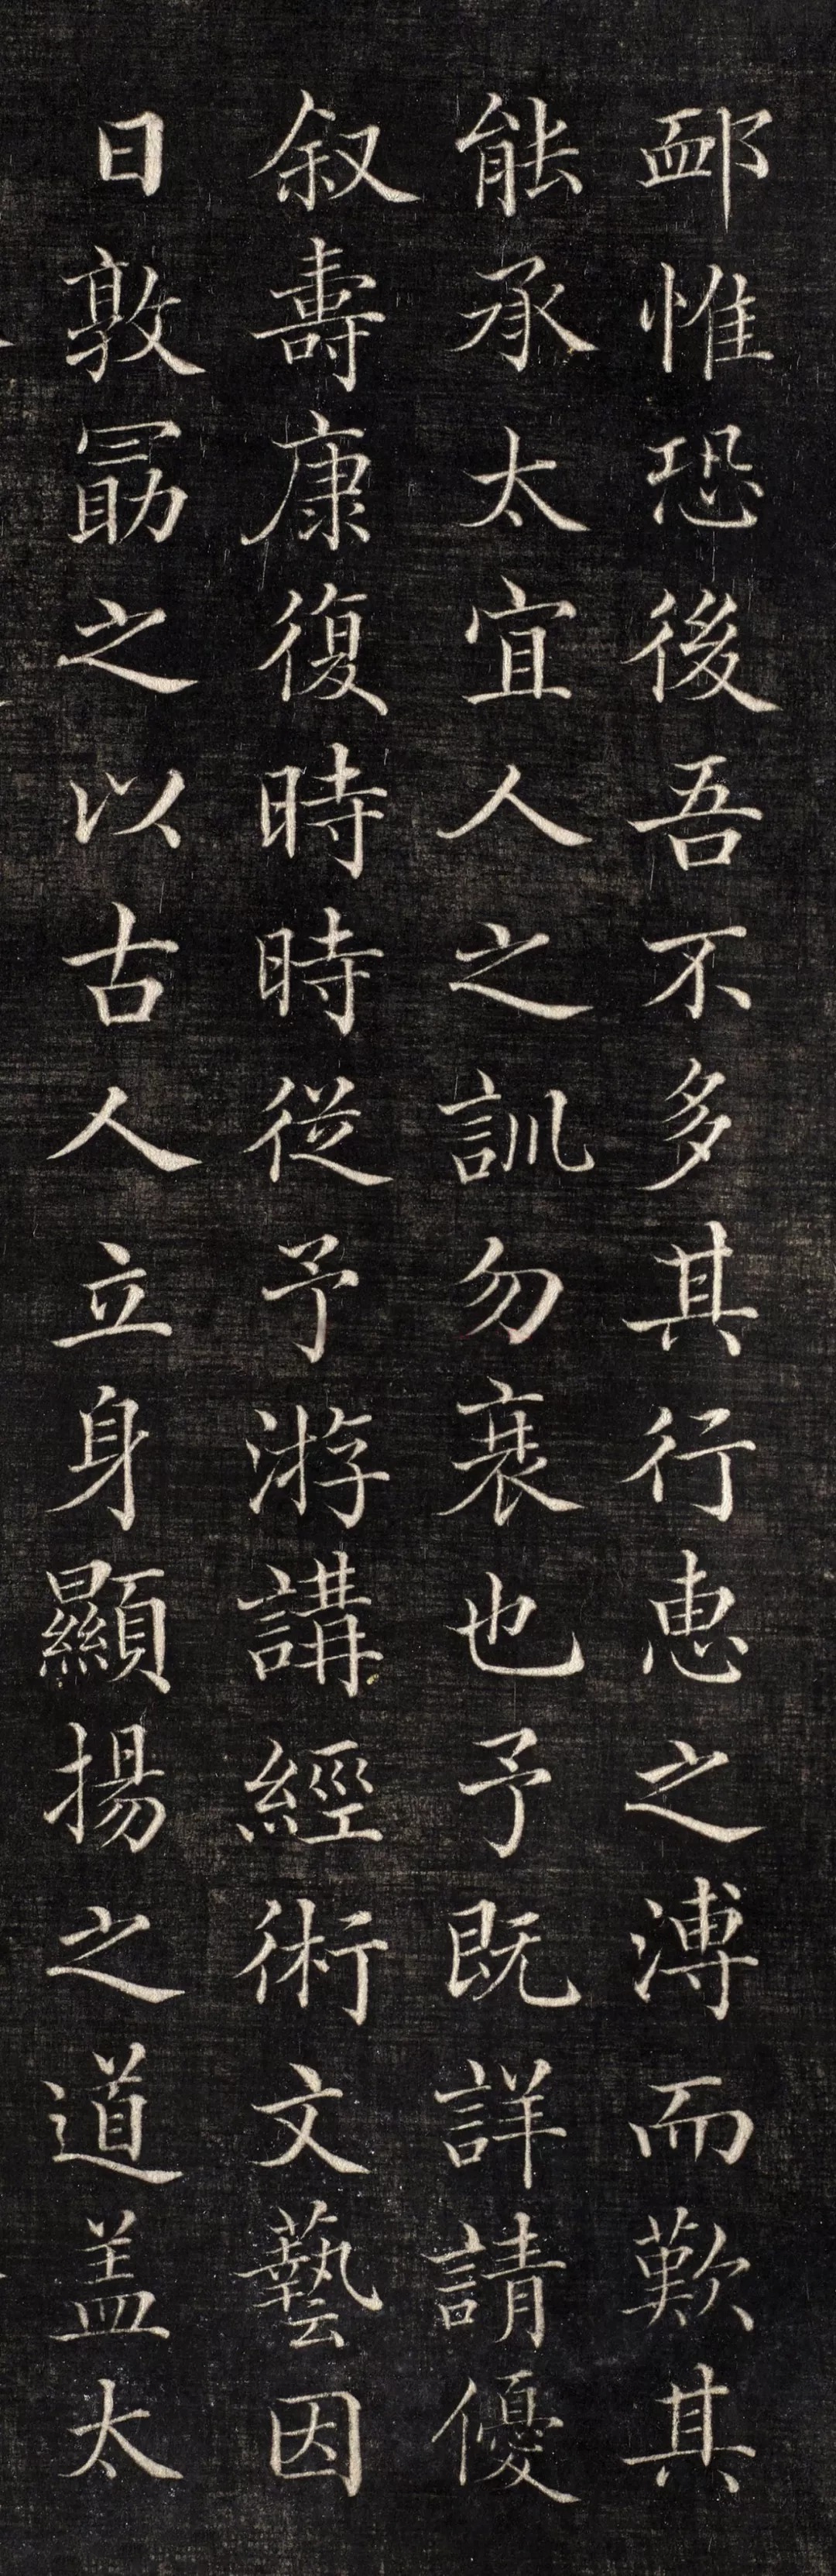 卹惟恐後吾不多其行惠之溥而歎其
能承太宜人之訓勿衰也予既詳請優
叙壽康復時時從予游講經術文藝因
日敦勗之以古人立身顯揚之道盖太